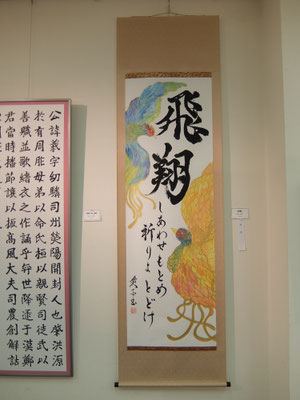 飛翔
しあわせもとめ
祈りよとどけ
公諱羲字幼驎司州滎陽開封人也肇洪源
於有周胙母弟以命氏桓以親賢司徒武以
善職並歌緇衣之作誦乎秭世降逮于漢鄭
君當時播節讓以振高風大夫司農創解詁